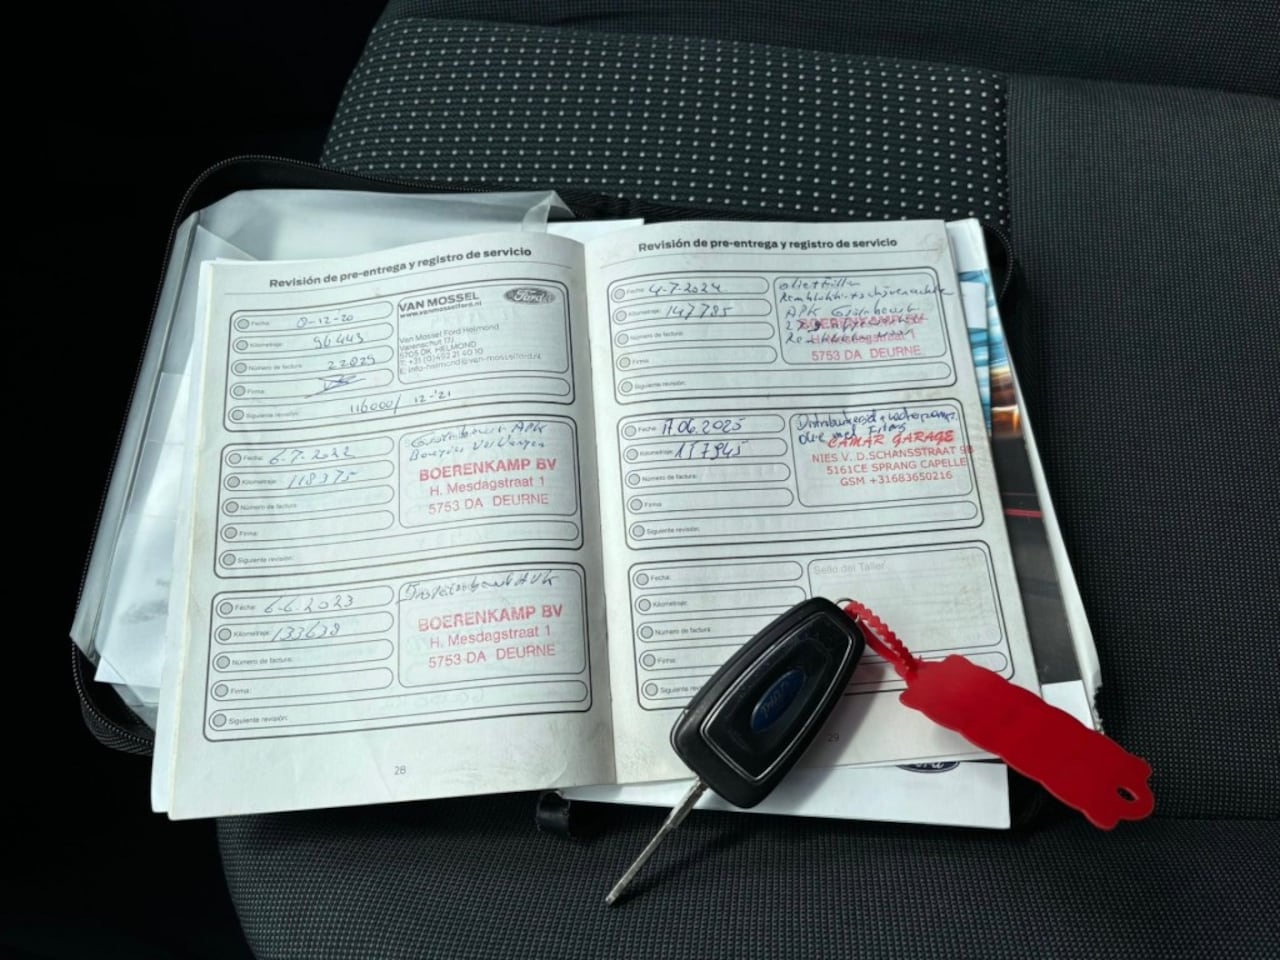 Revisión de pre-entrega y registro de servicio
Fecha: 8-12-20
Kilometraje: 96443
Número de factura: 22029
Firma:
Siguiente revisión: 116000/ 12-'21
VAN MOSSEL
www.vanmosselford.nl
Ford
Van Mossel Ford Helmond
Varenschut 17J
5705 DK HELMOND
T: +31 (0)492 21 40 10
E: info-helmond@van-mossel-ford.nl
Fecha: 6-7-2022
Kilometraje: 118375
Número de factura:
Firma:
Siguiente revisión:
Grote beurt APK
BOERENKAMP BV
H. Mesdagstraat 1
5753 DA DEURNE
Fecha: 6-6-2023
Kilometraje: 133638
Número de factura:
Firma:
Siguiente revisión:
APK
BOERENKAMP BV
H. Mesdagstraat 1
5753 DA DEURNE
28
Revisión de pre-entrega y registro de servicio
Fecha: 4-7-2024
Kilometraje: 147785
Número de factura:
Firma:
Siguiente revisión:
APK Grote beurt
BOERENKAMP BV
H. Mesdagstraat 1
5753 DA DEURNE
Fecha: 17.06.2025
Kilometraje: 157945
Número de factura:
Firma:
Siguiente revisión:
Distributieriem + waterpomp
Olie met filters
CAMAR GARAGE
NIES V. D. SCHANSSTRAAT 9
5161CE SPRANG CAPELLE
GSM +31683650216
Fecha:
Kilometraje:
Número de factura:
Firma:
Siguiente rev
Sello del Taller
29
Ford
Ford